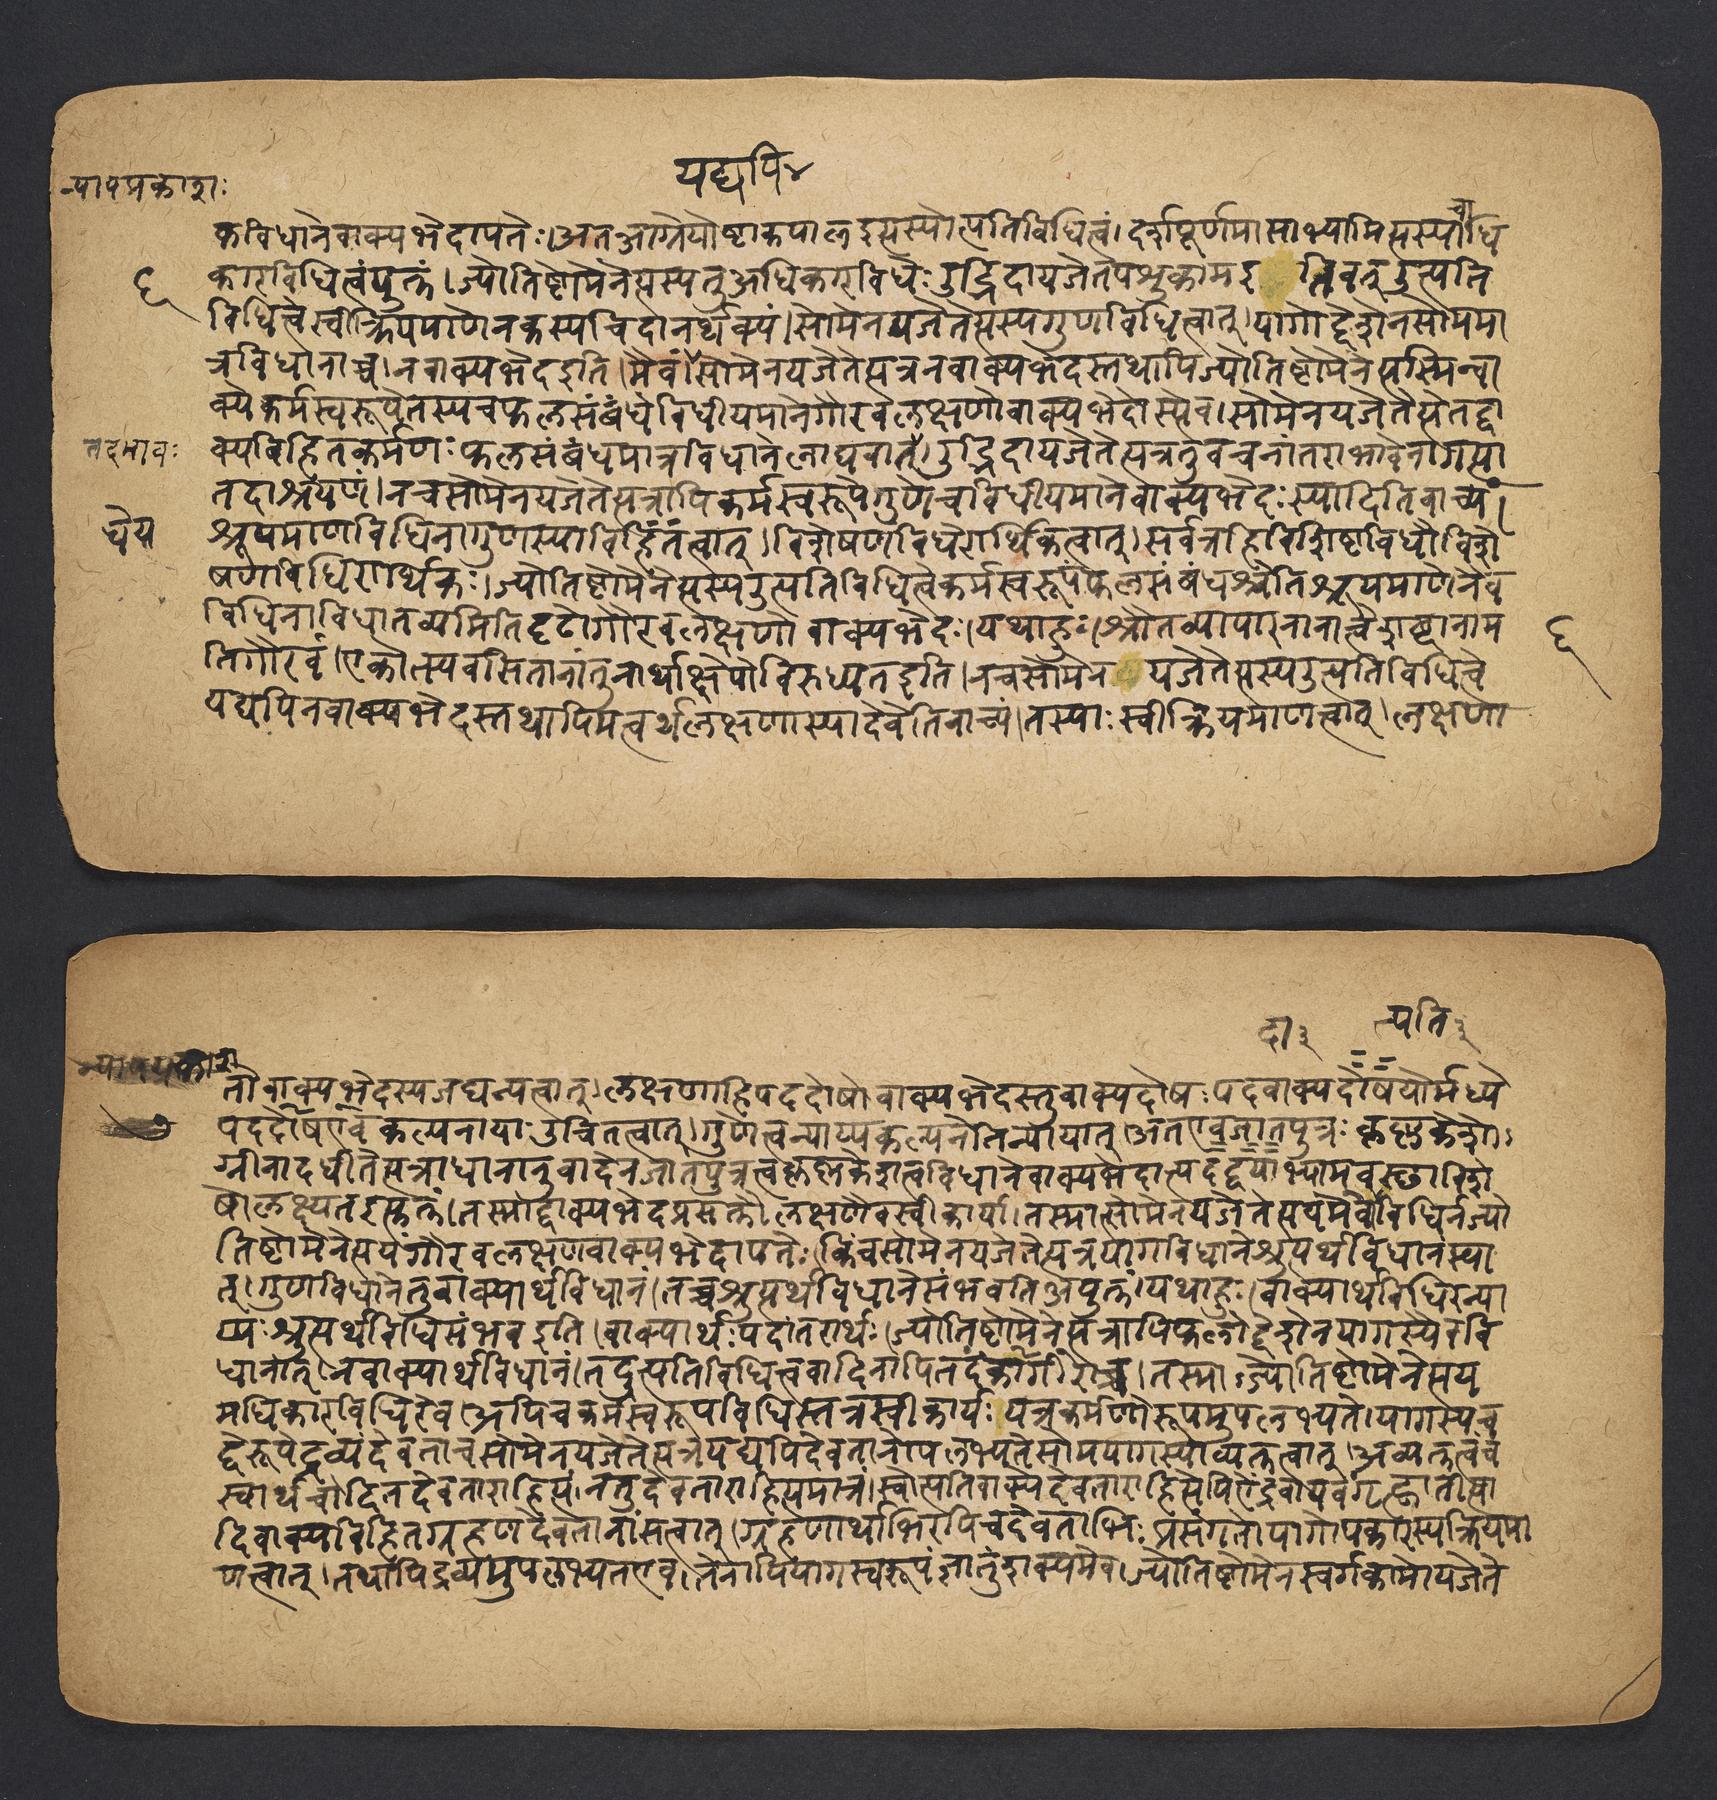 न्यायप्रकाशः
यद्यपि४
कविधानेवाक्यभेदापत्तेः।अतआग्नेयोष्टाकपालइत्यस्योत्पत्तिविधित्वं।दर्शपूर्णमासाभ्यामित्यस्याधि
६
कारविधित्वंयुक्तं।ज्योतिष्टोमेनेत्यस्यतुअधिकारविधेः उद्भिदायजेतेपशुकामइ तिवत् उत्पत्ति
विधित्वेस्वीक्रियमाणेनकस्यचिदानर्थक्यं।सोमेनयजेतेत्यस्यगुणविधित्वात्।यागोद्देशेनसोममा
त्रविधानाच्च।नवाक्यभेदइति।मैवं।सोमेनयजेतेत्यत्रनवाक्यभेदस्तथापिज्योतिष्टोमेनेत्यस्मिन्वा
क्येकर्मस्वरूपेतस्यचफलसंबंधेविधीयमानेगौरवलक्षणोवाक्यभेदोस्त्येव।सोमेनयजेतेत्येतद्वा
तदभावः
क्यविहितकर्मणःफलसंबंधमात्रविधानेनोद्यवात्।उद्भिदायजेतेत्यत्रतुवचनांतराभावेनागत्या
तदाश्रयणं।नचसोमेनयजेतेत्यत्रापिकर्मस्वरूपेगुणेचविधीयमानेवाक्यभेदःस्यादितिवाच्यं।
धेय
श्रूयमाणविधिनागुणस्याविहितत्वात्।विशेषणविधेरार्थिकत्वात्।सर्वत्रहिविशिष्टविधौविशे
षणविधिरार्थिकः।ज्योतिष्टोमेनेत्यस्यउत्पत्तिविधित्वेकर्मस्वरूपंफलसंबंधश्चेतिश्रूयमाणेनैव
विधिनाविधातव्यमितिदृढोगौरवलक्षणोवाक्यभेदः।यथाहुः।श्रौतव्यापारनानात्वेशब्दानाम
६
तिगौरवं।एकोक्त्यवसितानांतुनार्थाक्षेपोविरुध्यतइति।नचसोमेन यजेतेत्यस्यउत्पत्तिविधित्वे
यद्यपिनवाक्यभेदस्तथापिमत्वर्थलक्षणास्यादेवेतिवाच्यं।तस्याःस्वीक्रियमाणत्वात्।लक्षणा
दा३ त्पत्ति३
न्यायप्रकाश
तोवाक्यभेदस्यजघन्यत्वात्।लक्षणाहिपददोषोवाक्यभेदस्तुवाक्यदोषःपदवाक्यदोषयोर्मध्ये
७
पददोषएवकल्पनायाःउचितत्वात्।गुणेत्वन्याय्यकल्पनेतिन्यायात्।अतएवजातपुत्रःकृष्णकेशो
ग्नीनादधीतेत्यत्राधानानुवादेनजातपुत्रत्वकृष्णकेशत्वविधानेवाक्यभेदात्पदद्वयाभ्यामवस्थाविशे
षोलक्ष्यतइत्युक्तं।तस्माद्वाक्यभेदप्रसक्तौलक्षणैवस्वीकार्या।तस्मात्सोमेनयजेतेत्ययमेवविधिर्नज्यो
तिष्टोमेनेत्ययंगौरवलक्षणवाक्यभेदापत्तेः।किंचसोमेनयजेतेत्यत्रयागविधानेश्रुत्यर्थविधानंस्या
त्।गुणविधानेतुवाक्यार्थविधानं।तच्चश्रुत्यर्थविधानेसंभवतिअयुक्तं।यथाहुः।वाक्यार्थविधिरन्या
य्यःश्रुत्यर्थविधिसंभवइति।वाक्यार्थःपदांतरार्थः।ज्योतिष्टोमेनेत्यत्रापिफलोद्देशेनयागस्यैववि
धानात्।नवाक्यार्थविधानं।तदुत्पत्तिविधित्ववादिनापितदंगीकाराच्च।तस्माज्ज्योतिष्टोमेनेत्यय
मधिकारविधिरेव।अपिचकर्मस्वरूपविधिस्तत्रस्वीकार्यःयत्रकर्मणोरूपमुपलभ्यते।यागस्यच
द्वेरूपेद्रव्यंदेवताच।सोमेनयजेतेत्यत्रयद्यपिदेवतानोपलभ्यतेसोमयागस्याव्यक्तत्वात्।अव्यक्तत्वंच
स्वार्थचोदितदेवताराहित्यं।नतुदेवताराहित्यमात्रं।स्वोत्पत्तिवाक्येदेवताराहित्येपिऐंद्रवायवंगृह्णातीत्या
दिवाक्यविहितग्रहणदेवतानांसत्वात्।ग्रहणार्थाभिरपिचदेवताभिःप्रसंगतोयागोपकारस्यक्रियमा
णत्वात्।तथापिद्रव्यमुपलभ्यतएव।तेनापियागस्वरूपंज्ञातुंशक्यमेव।ज्योतिष्टोमेनस्वर्गकामोयजेते